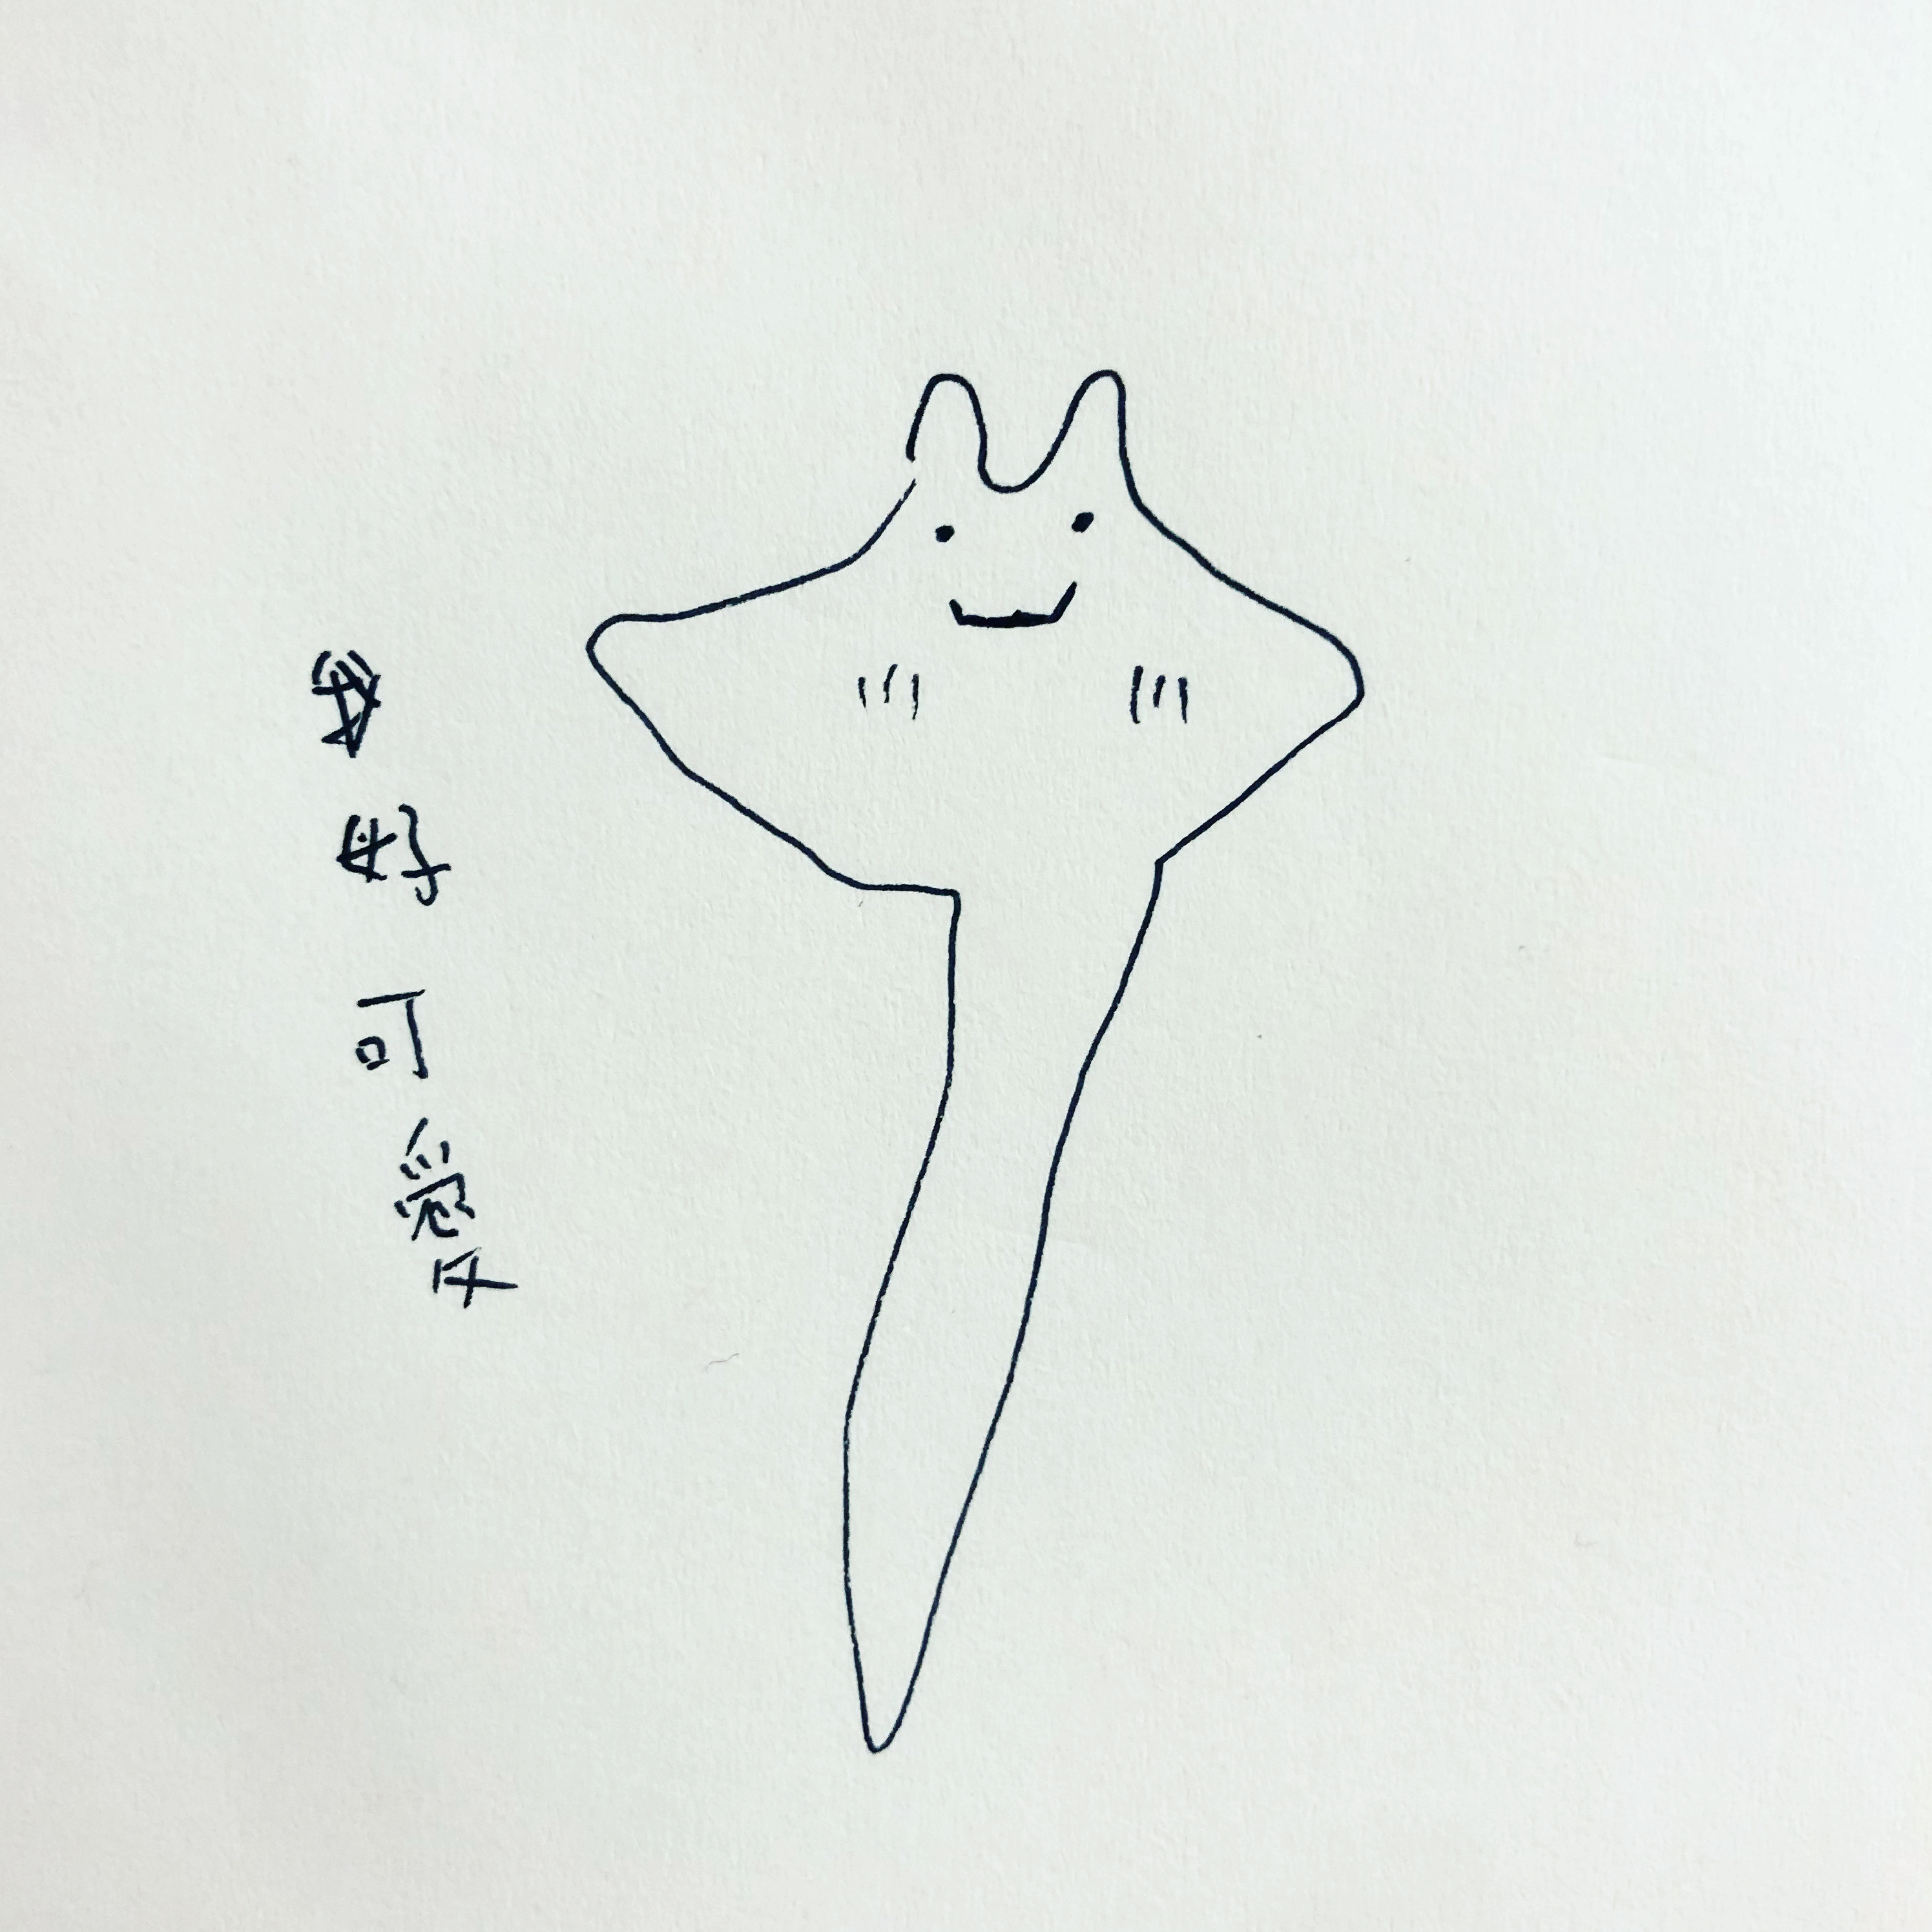 我好可愛